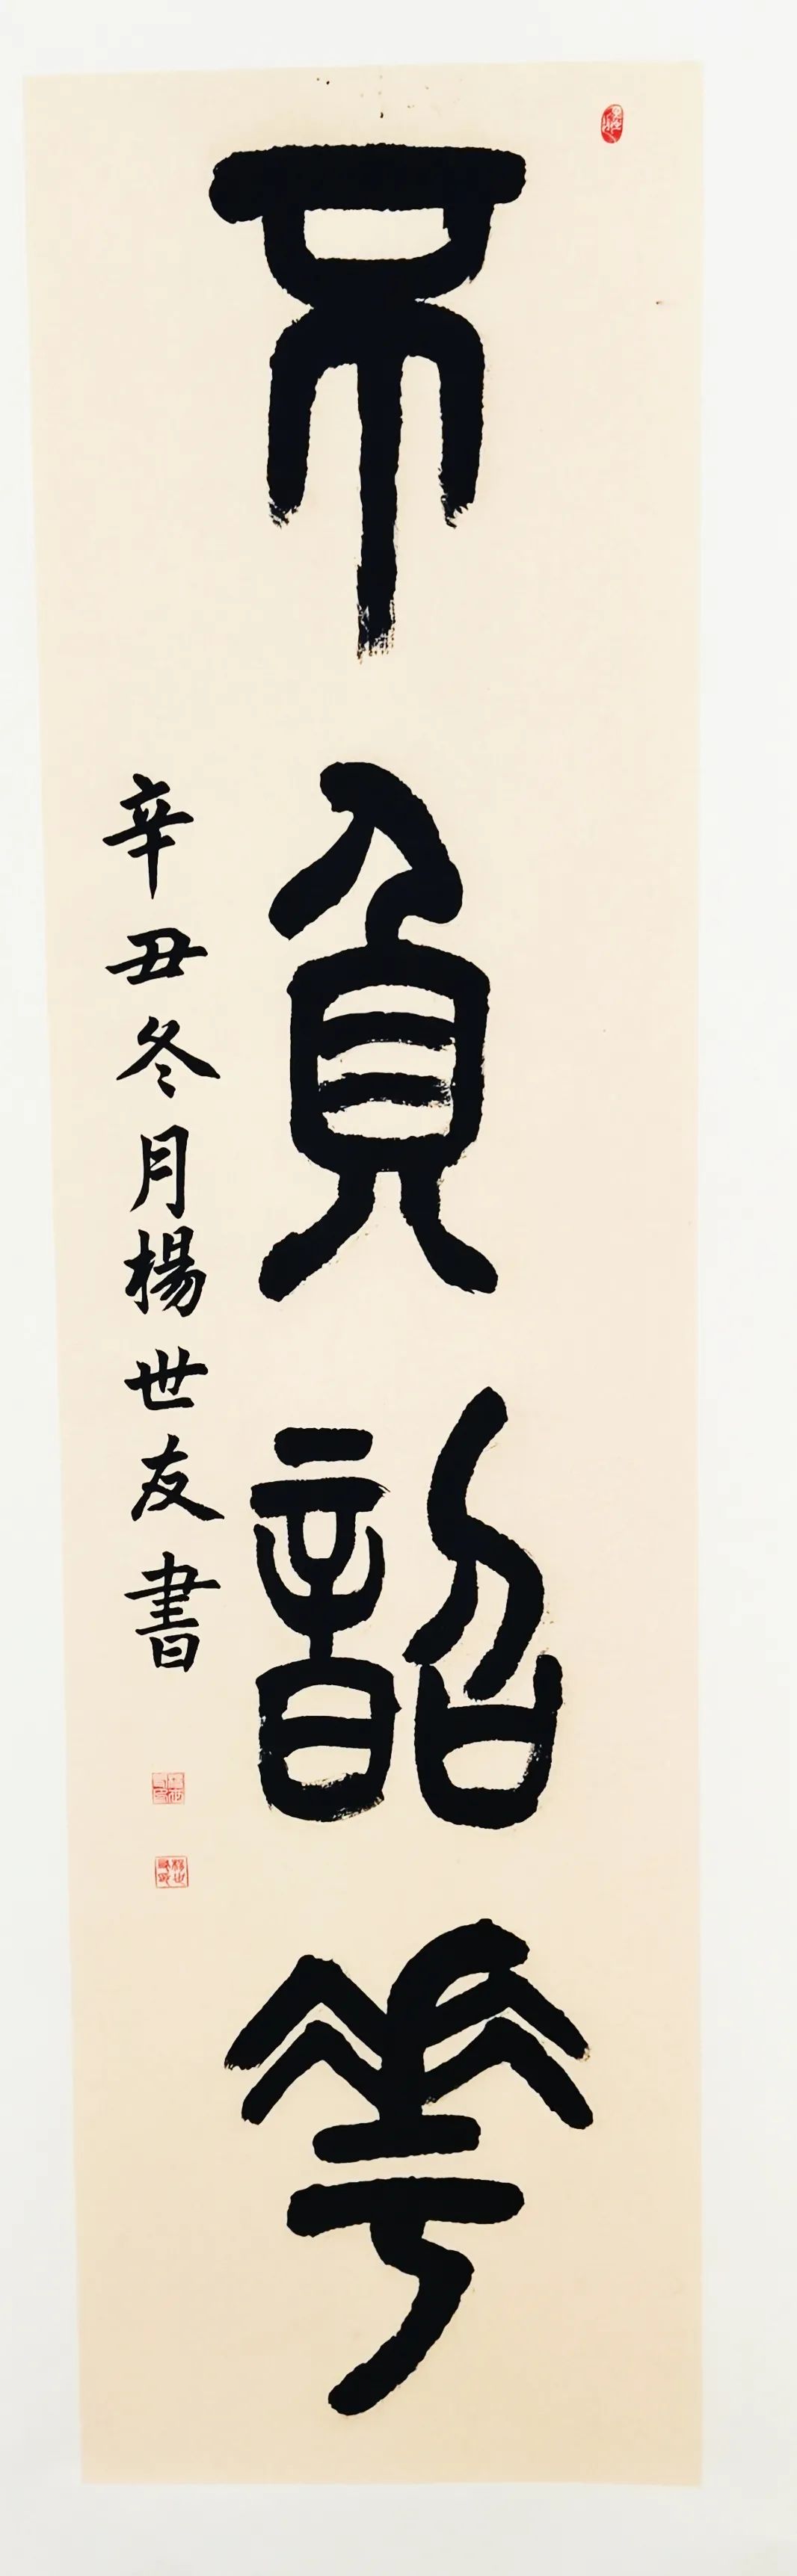 不負韶華
辛丑冬月楊世友書